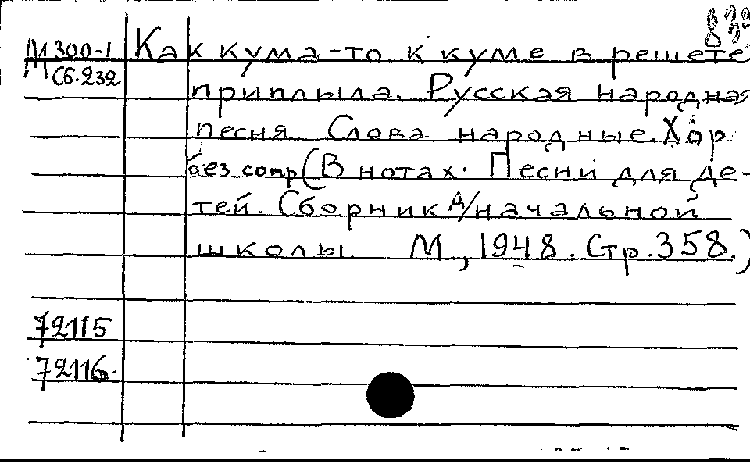 М 300-1 Как кума-то к куме в решете
Сб.232 приплыла. Русская народная
песня. Слова народные. Хор
без сопр (В нотах. Песни для де-
тей. Сборник д/начальной
школы. М, 1948. Стр. 358.)
72115
72116.